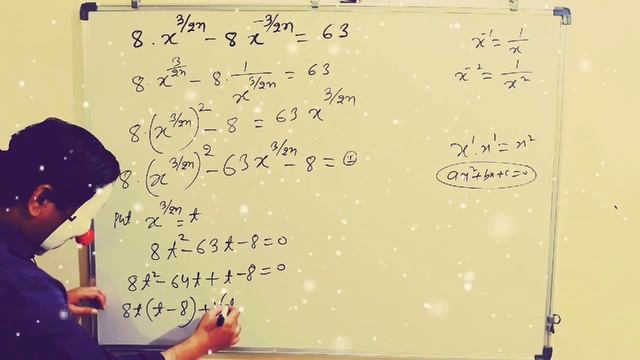 8 · x^{3/2n} - 8 x^{-3/2n} = 63
8 · x^{3/2n} - 8 · 1/x^{3/2n} = 63
8 · (x^{3/2n})^2 - 8 = 63 x^{3/2n}
8 · (x^{3/2n})^2 - 63 x^{3/2n} - 8 = 0
put x^{3/2n} = t
8t^2 - 63t - 8 = 0
8t^2 - 64t + t - 8 = 0
8t(t - 8) +
x^{-1} = 1/x
x^{-2} = 1/x^2
x^1 · x^1 = x^2
ax^2 + bx + c = 0